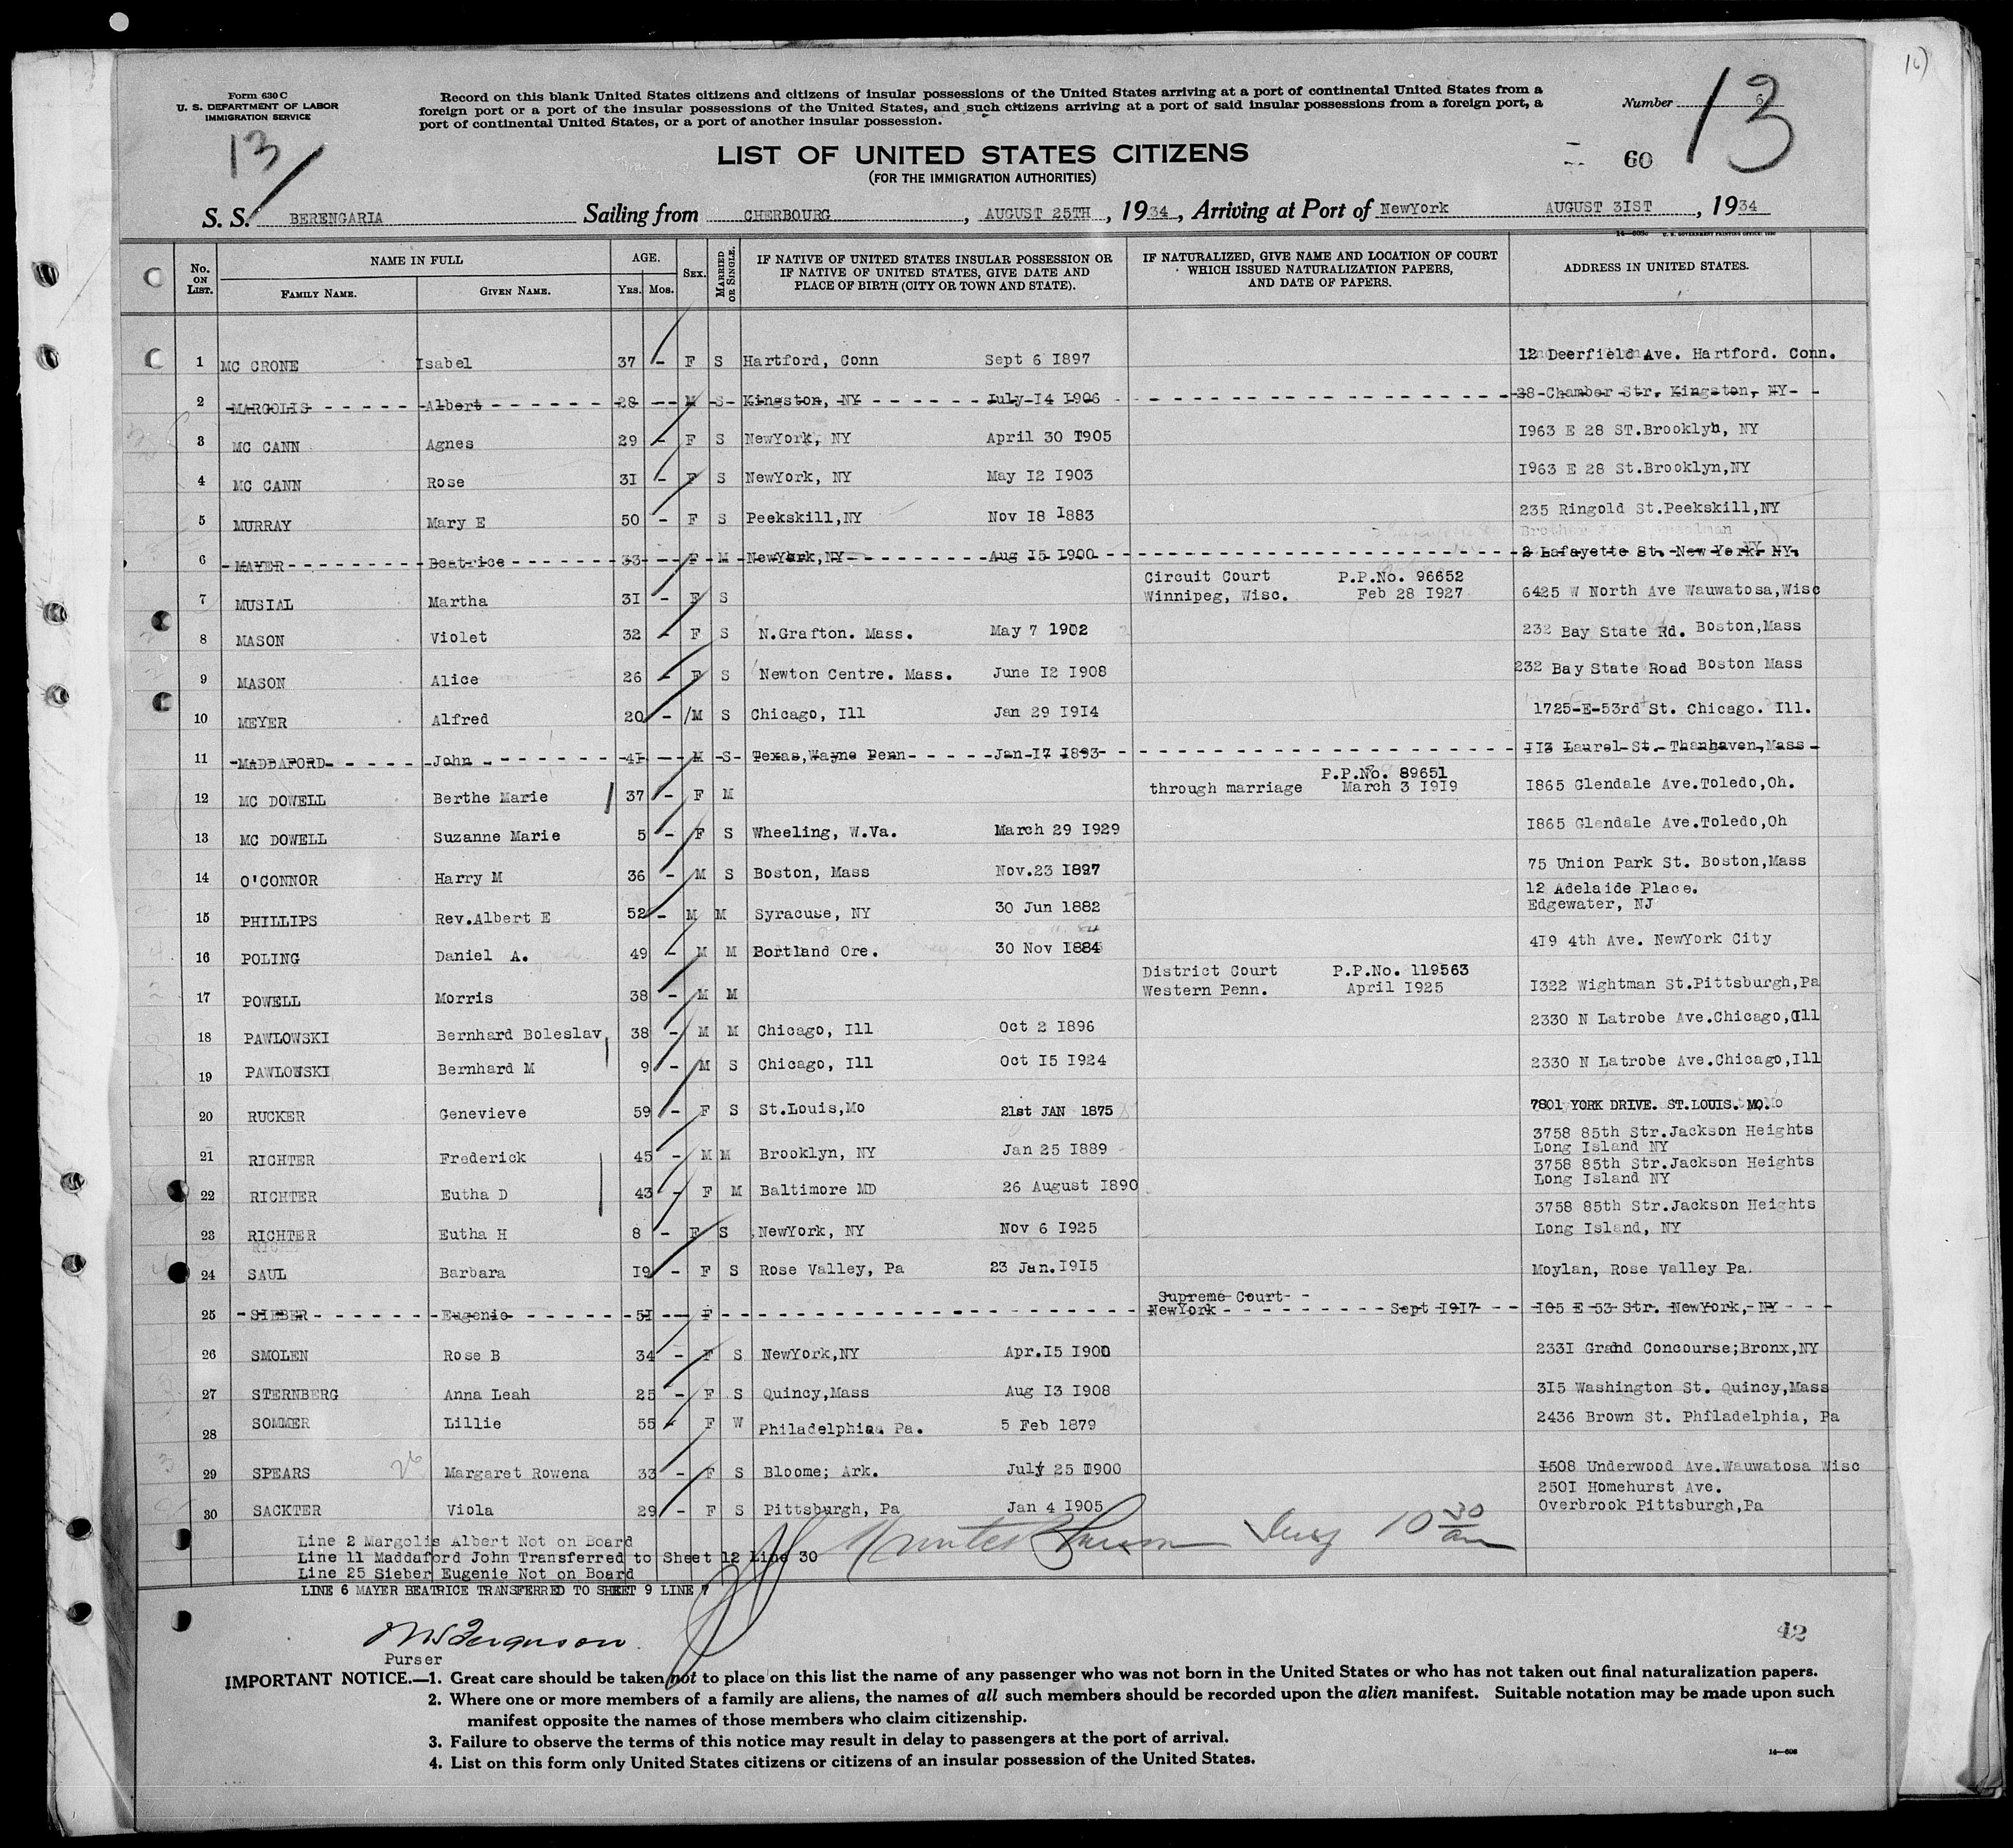 16)
Form 630 C
U. S. DEPARTMENT OF LABOR
IMMIGRATION SERVICE
13
Record on this blank United States citizens and citizens of insular possessions of the United States arriving at a port of continental United States from a
foreign port or a port of the insular possessions of the United States, and such citizens arriving at a port of said insular possessions from a foreign port, a
port of continental United States, or a port of another insular possession.
Number 6
13
LIST OF UNITED STATES CITIZENS
(FOR THE IMMIGRATION AUTHORITIES)
60
S. S. BERENGARIA Sailing from CHERBOURG, AUGUST 25TH, 1934, Arriving at Port of NewYork AUGUST 31ST, 1934
No. ON LIST. NAME IN FULL FAMILY NAME. GIVEN NAME. AGE. YRS. MOS. SEX. MARRIED OR SINGLE. IF NATIVE OF UNITED STATES INSULAR POSSESSION OR IF NATIVE OF UNITED STATES, GIVE DATE AND PLACE OF BIRTH (CITY OR TOWN AND STATE). IF NATURALIZED, GIVE NAME AND LOCATION OF COURT WHICH ISSUED NATURALIZATION PAPERS, AND DATE OF PAPERS. ADDRESS IN UNITED STATES.
1 MC CRONE Isabel 37 - F S Hartford, Conn Sept 6 I897 12 Deerfield Ave. Hartford. Conn.
2 MARGOLIS Albert 28 - M S Kingston, NY July I4 I906 38 Chamber Str. Kingston, NY
3 MC CANN Agnes 29 - F S NewYork, NY April 30 I905 I963 E 28 ST.Brooklyn, NY
4 MC CANN Rose 3I - F S NewYork, NY May I2 I903 I963 E 28 St.Brooklyn,NY
5 MURRAY Mary E 50 - F S Peekskill,NY Nov I8 I883 235 Ringold St.Peekskill,NY
6 MAYER Beatrice 33 - F M NewYork,NY Aug I5 I900 2 Lafayette St. New York NY.
7 MUSIAL Martha 3I - F S Circuit Court P.P.No. 96652
Winnipeg, Wisc. Feb 28 I927 6425 W North Ave Wauwatosa,Wisc
8 MASON Violet 32 - F S N.Grafton. Mass. May 7 1902 232 Bay State Rd. Boston,Mass
9 MASON Alice 26 - F S Newton Centre. Mass. June I2 I908 232 Bay State Road Boston Mass
10 MEYER Alfred 20 - M S Chicago, Ill Jan 29 I9I4 I725-E-53rd St. Chicago. Ill.
11 MADDAFORD John 4I - M S Texas,Wayne Penn Jan I7 I893 II3 Laurel St. Thanhaven,Mass
12 MC DOWELL Berthe Marie 37 - F M through marriage P.P.No. 89651
March 3 I9I9 I865 Glendale Ave.Toledo,Oh.
13 MC DOWELL Suzanne Marie 5 - F S Wheeling, W.Va. March 29 I929 I865 Glendale Ave.Toledo,Oh
14 O'CONNOR Harry M 36 - M S Boston, Mass Nov.23 I897 75 Union Park St. Boston,Mass
15 PHILLIPS Rev.Albert E 52 - M M Syracuse, NY 30 Jun I882 I2 Adelaide Place.
Edgewater, NJ
16 POLING Daniel A. 49 - M M Portland Ore. 30 Nov I884 4I9 4th Ave. NewYork City
17 POWELL Morris 38 - M M District Court P.P.No. 119563
Western Penn. April I925 I322 Wightman St.Pittsburgh,Pa
18 PAWLOWSKI Bernhard Boleslav 38 - M M Chicago, Ill Oct 2 I896 2330 N Latrobe Ave.Chicago,Ill
19 PAWLOWSKI Bernhard M 9 - M S Chicago, Ill Oct I5 I924 2330 N Latrobe Ave.Chicago,Ill
20 RUCKER Genevieve 59 - F S St.Louis,Mo 21st JAN 1875 7801 YORK DRIVE. ST.LOUIS. MO.
21 RICHTER Frederick 45 - M M Brooklyn, NY Jan 25 I889 3758 85th Str.Jackson Heights
Long Island NY
22 RICHTER Eutha D 43 - F M Baltimore MD 26 August I890 3758 85th Str.Jackson Heights
Long Island NY
23 RICHTER Eutha H 8 - F S NewYork, NY Nov 6 I925 3758 85th Str.Jackson Heights
Long Island, NY
24 SAUL Barbara I9 - F S Rose Valley, Pa 23 Jan.I9I5 Moylan, Rose Valley Pa.
25 SIEBER Eugenie 5I - F Supreme Court
NewYork Sept I9I7 I05 E 53 Str. NewYork, NY
26 SMOLEN Rose B 34 - F S NewYork,NY Apr.I5 I900 233I Grand Concourse;Bronx,NY
27 STERNBERG Anna Leah 25 - F S Quincy,Mass Aug I3 I908 3I5 Washington St. Quincy,Mass
28 SOMMER Lillie 55 - F W Philadelphia Pa. 5 Feb I879 2436 Brown St. Philadelphia, Pa
29 SPEARS 26 Margaret Rowena 33 - F S Bloome; Ark. July 25 I900 I508 Underwood Ave.Wauwatosa Wisc
30 SACKTER Viola 29 - F S Pittsburgh, Pa Jan 4 I905 250I Homehurst Ave.
Overbrook Pittsburgh,Pa
Line 2 Margolis Albert Not on Board
Line 11 Maddaford John Transferred to Sheet 12 Line 30
Line 25 Sieber Eugenie Not on Board
LINE 6 MAYER BEATRICE TRANSFERRED TO SHEET 9 LINE 7
10 30 am
Ferguson
Purser
42
IMPORTANT NOTICE.—1. Great care should be taken not to place on this list the name of any passenger who was not born in the United States or who has not taken out final naturalization papers.
2. Where one or more members of a family are aliens, the names of all such members should be recorded upon the alien manifest. Suitable notation may be made upon such
manifest opposite the names of those members who claim citizenship.
3. Failure to observe the terms of this notice may result in delay to passengers at the port of arrival.
4. List on this form only United States citizens or citizens of an insular possession of the United States.
14—608